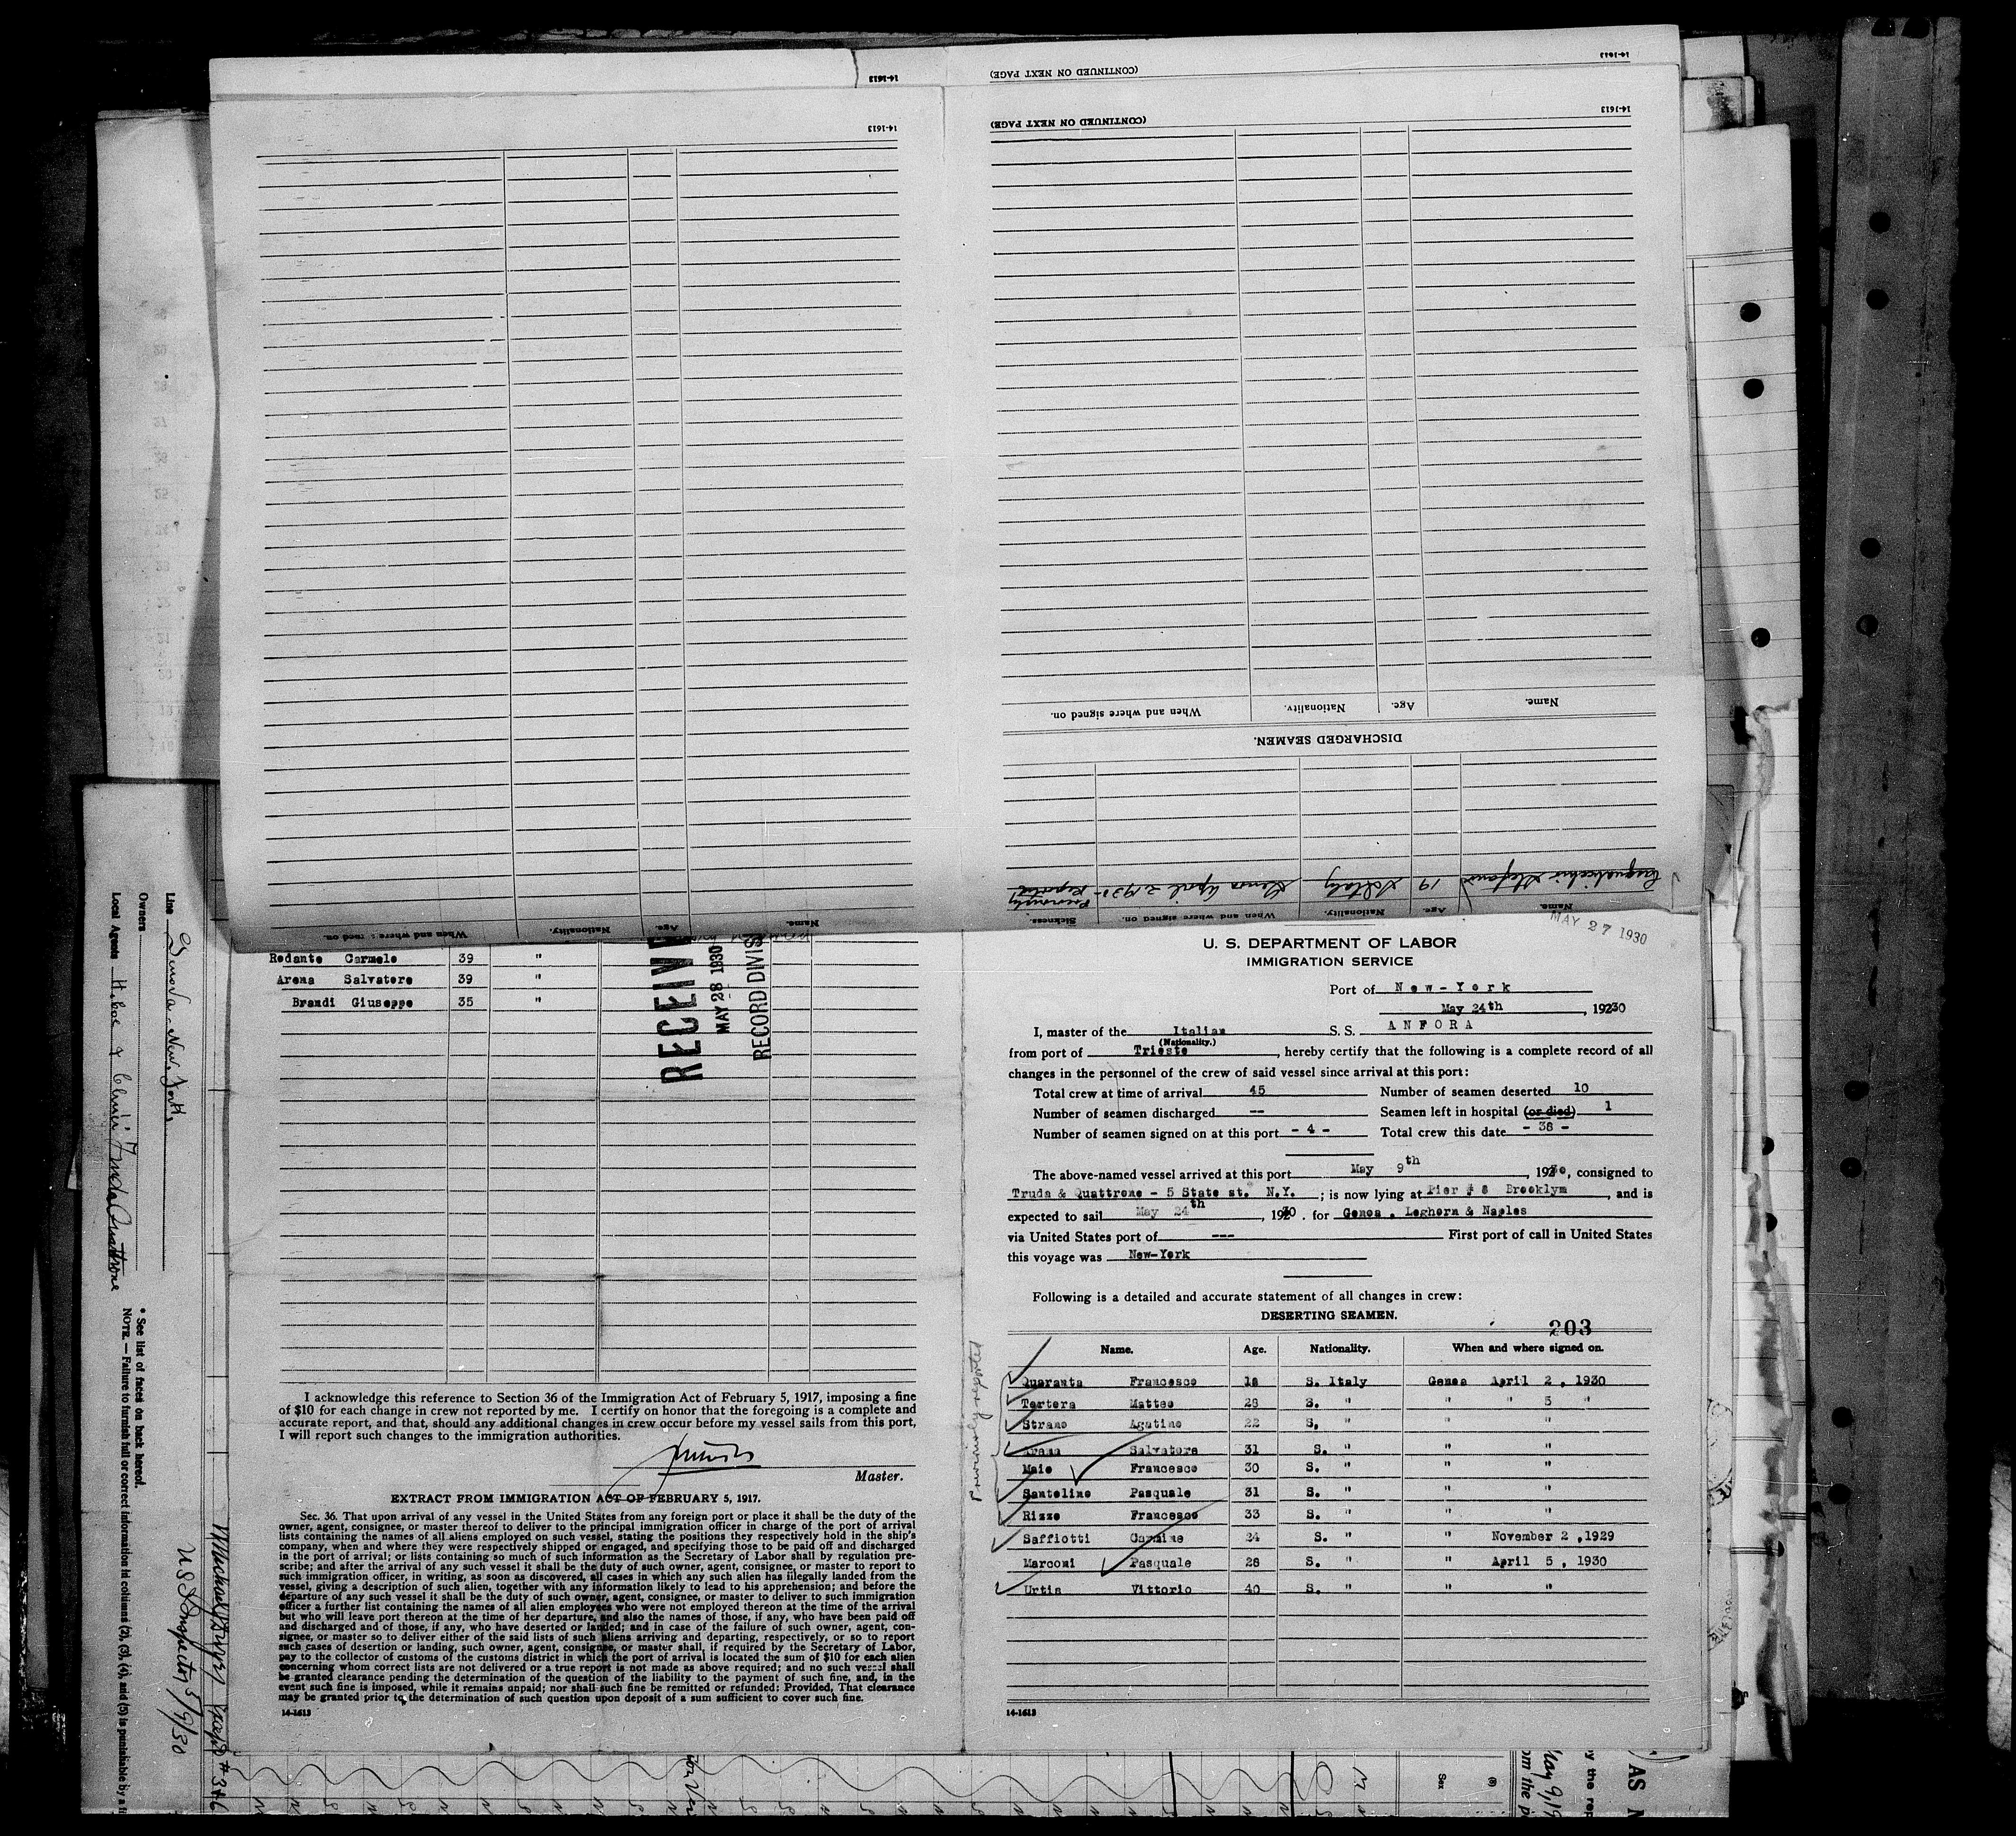 14-1613
(CONTINUED ON NEXT PAGE)
14-1613
14-1613
(CONTINUED ON NEXT PAGE)
14-1613
When and where signed on.
Nationality.
Age.
Name.
DISCHARGED SEAMEN.
Stefano 19 Italy Genoa April 2 1930 - Previously Reported
Sickness.
When and where signed on.
Nationality.
Age.
Name.
Nationality.
Age.
Name.
Redante Carmelo 39 "
Arena Salvatore 39 "
Brandi Giuseppe 35 "
RECEIV
MAY 28 1930
RECORD DIVIS
I acknowledge this reference to Section 36 of the Immigration Act of February 5, 1917, imposing a fine
of $10 for each change in crew not reported by me. I certify on honor that the foregoing is a complete and
accurate report, and that, should any additional changes in crew occur before my vessel sails from this port,
I will report such changes to the immigration authorities.
Master.
EXTRACT FROM IMMIGRATION ACT OF FEBRUARY 5, 1917.
Sec. 36. That upon arrival of any vessel in the United States from any foreign port or place it shall be the duty of the
owner, agent, consignee, or master thereof to deliver to the principal immigration officer in charge of the port of arrival
lists containing the names of all aliens employed on such vessel, stating the positions they respectively hold in the ship's
company, when and where they were respectively shipped or engaged, and specifying those to be paid off and discharged
in the port of arrival; or lists containing so much of such information as the Secretary of Labor shall by regulation pre-
scribe; and after the arrival of any such vessel it shall be the duty of such owner, agent, consignee, or master to report to
such immigration officer, in writing, as soon as discovered, all cases in which any such alien has illegally landed from the
vessel, giving a description of such alien, together with any information likely to lead to his apprehension; and before the
departure of any such vessel it shall be the duty of such owner, agent, consignee, or master to deliver to such immigration
officer a further list containing the names of all alien employees who were not employed thereon at the time of the arrival
but who will leave port thereon at the time of her departure, and also the names of those, if any, who have been paid off
and discharged and of those, if any, who have deserted or landed; and in case of the failure of such owner, agent, con-
signee, or master so to deliver either of the said lists of such aliens arriving and departing, respectively, or so to report
such cases of desertion or landing, such owner, agent, consignee, or master shall, if required by the Secretary of Labor,
pay to the collector of customs of the customs district in which the port of arrival is located the sum of $10 for each alien
concerning whom correct lists are not delivered or a true report is not made as above required; and no such vessel shall
be granted clearance pending the determination of the question of the liability to the payment of such fine, and, in the
event such fine is imposed, while it remains unpaid; nor shall such fine be remitted or refunded: Provided, That clearance
may be granted prior to the determination of such question upon deposit of a sum sufficient to cover such fine.
14-1613
MAY 27 1930
U. S. DEPARTMENT OF LABOR
IMMIGRATION SERVICE
Port of New-York
May 24th, 1930
I, master of the Italian S. S. ANFORA
(Nationality.)
from port of Trieste, hereby certify that the following is a complete record of all
changes in the personnel of the crew of said vessel since arrival at this port:
Total crew at time of arrival 45 Number of seamen deserted 10
Number of seamen discharged -- Seamen left in hospital (or died) 1
Number of seamen signed on at this port - 4 - Total crew this date - 38 -
The above-named vessel arrived at this port May 9th, 1930, consigned to
Truda & Quattrone - 5 State st. N.Y.; is now lying at Pier # 8 Brooklyn, and is
expected to sail May 24th, 1930. for Genoa. Leghorn & Naples
via United States port of --- First port of call in United States
this voyage was New-York
Following is a detailed and accurate statement of all changes in crew:
DESERTING SEAMEN.
203
Name. Age. Nationality. When and where signed on.
Previously reported
Quaranta Francesco 18 S. Italy Genoa April 2, 1930
Tertera Matteo 28 S. " " " 5 "
Strano Agatino 22 S. " " "
Arama Salvatore 31 S. " " "
Maio Francesco 30 S. " " "
Santolino Pasquale 31 S. " " "
Rizzo Francesco 33 S. " " "
Saffiotti Carmine 24 S. " " November 2, 1929
Marconi Pasquale 28 S. " " April 5, 1930
Urtia Vittorio 40 S. " " "
14-1613
Line Genova - New York
Owners
Local Agents
Truda Quattrone
* See list of races on back hereof.
NOTE.—Failure to furnish full or correct information in columns (2), (3), (4), and (5) is punishable by a fi
US Inspector 5/9/30
Sex
May 9, 19
om the p
y the rep
AS